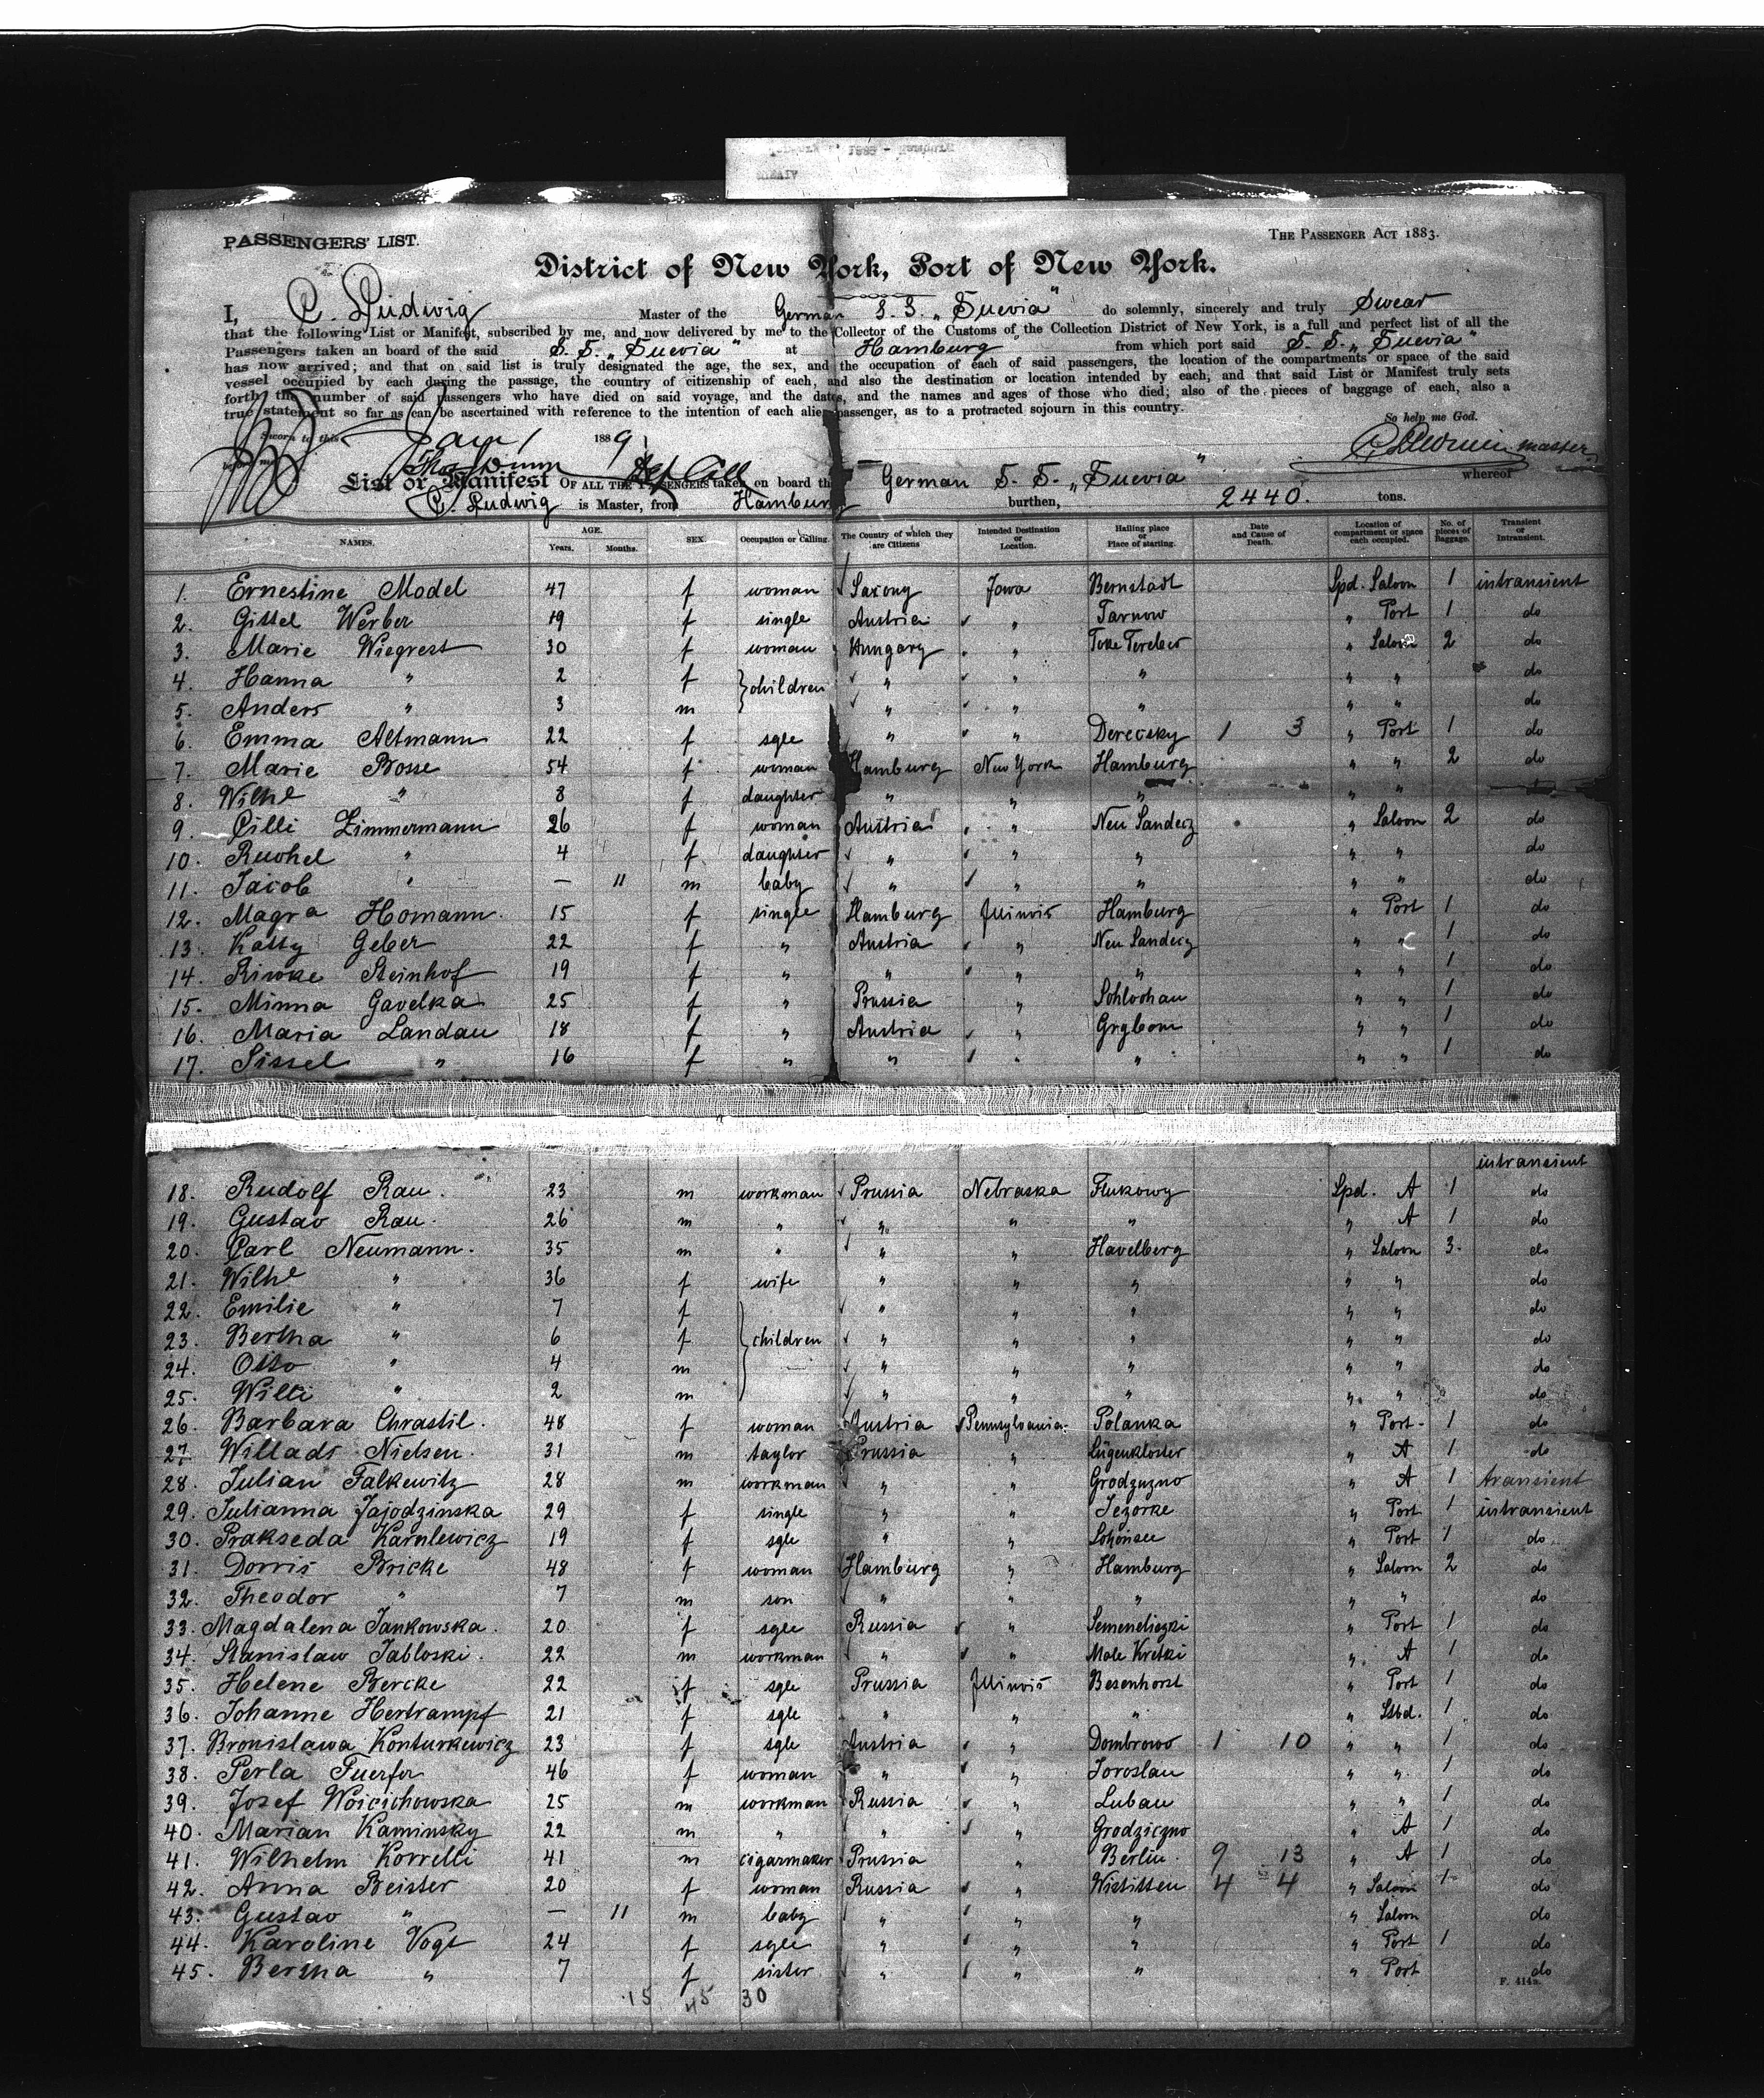 PASSENGERS' LIST.
THE PASSENGER ACT 1883.
District of New York, Port of New York.
I, C. Ludwig Master of the German S. S. „Suevia" do solemnly, sincerely and truly Swear
that the following List or Manifest, subscribed by me, and now delivered by me to the Collector of the Customs of the Collection District of New York, is a full and perfect list of all the
Passengers taken an board of the said S. S. „Suevia" at Hamburg from which port said S. S. „Suevia"
has now arrived; and that on said list is truly designated the age, the sex, and the occupation of each of said passengers, the location of the compartments or space of the said
vessel occupied by each during the passage, the country of citizenship of each, and also the destination or location intended by each; and that said List or Manifest truly sets
forth the number of said passengers who have died on said voyage, and the dates, and the names and ages of those who died; also of the pieces of baggage of each, also a
true statement so far as can be ascertained with reference to the intention of each alien passenger, as to a protracted sojourn in this country.
So help me God.
Sworn to this Jany 1 1889
C. Ludwig master
List or Manifest OF ALL THE PASSENGERS taken on board the German S. S. „Suevia" whereof
C. Ludwig is Master, from Hamburg burthen, 2440. tons.
NAMES. AGE. Years. Months. SEX. Occupation or Calling. The Country of which they are Citizens Intended Destination or Location. Hailing place or Place of starting. Date and Cause of Death. Location of compartment or space each occupied. No. of pieces of Baggage. Transient or Intransient.
1. Ernestine Model 47 f woman Saxony Iowa Bernstadt Spd. Saloon 1 intransient
2. Gittel Werber 19 f single Austria „ Tarnow „ Port 1 do
3. Marie Wiegrest 30 f woman Hungary „ Toke Terebes „ Saloon 2 do
4. Hanna „ 2 f children „ „ „ „ „ do
5. Anders „ 3 m „ „ „ „ „ do
6. Emma Altmann 22 f sgle „ „ Derecsky 1 3 „ Port 1 do
7. Marie Bosse 54 f woman Hamburg New York Hamburg „ „ 2 do
8. Wilhe „ 8 f daughter „ „ „ „ „
9. Cilli Zimmermann 26 f woman Austria „ Neu Sandecz „ Saloon 2 do
10. Ruchel „ 4 f daughter „ „ „ „ „ do
11. Jacob „ — 11 m baby „ „ „ „ „ do
12. Magra Homann. 15 f single Hamburg Illinois Hamburg „ Port 1 do
13. Katty Geber 22 f „ Austria „ Neu Sandecz „ „ 1 do
14. Riwke Steinhof 19 f „ „ „ „ „ „ 1 do
15. Minna Gavelka 25 f „ Prussia „ Schlochau „ „ 1 do
16. Maria Landau 18 f „ Austria „ Grybow „ „ 1 do
17. Sissel „ 16 f „ „ „ „ „ „ 1 do
intransient
18. Rudolf Rau. 23 m workman Prussia Nebraska Flukowy Spd. A 1 do
19. Gustav Rau. 26 m „ „ „ „ „ A 1 do
20. Carl Neumann. 35 m „ „ „ Havelberg „ Saloon 3. do
21. Wilhe „ 36 f wife „ „ „ „ „ do
22. Emilie „ 7 f „ „ „ „ „ do
23. Bertha „ 6 f children „ „ „ „ „ do
24. Otto „ 4 m „ „ „ „ „ do
25. Willi „ 2 m „ „ „ „ „ do
26. Barbara Chrastil. 48 f woman Austria Pennsylvania Polanka „ Port 1 do
27. Willads Nielsen. 31 m taylor Prussia „ Lügenkloster „ A 1 do
28. Julian Falkewitz 28 m workman „ „ Grodzuzno „ A 1 transient
29. Julianna Jajodzinska 29 f single „ „ Jezorke „ Port 1 intransient
30. Prakseda Karnlewicz 19 f sgle „ „ Schönsee „ Port 1 do
31. Dorris Bricke 48 f woman Hamburg „ Hamburg „ Saloon 2 do
32. Theodor „ 7 m son „ „ „ „ „ do
33. Magdalena Jankowska. 20 f sgle Russia „ Semeneliszki „ Port 1 do
34. Stanislaw Jabloski. 22 m workman „ „ Male Kretki „ A 1 do
35. Helene Bercke 22 f sgle Prussia Illinois Besenhorst „ Port 1 do
36. Johanne Hertrampf 21 f sgle „ „ „ „ Stbd. 1 do
37. Bronislawa Konturkewicz 23 f sgle Austria „ Dombrowo 1 10 „ „ 1 do
38. Perla Fuerfer 46 f woman „ „ Joroslau „ „ 1 do
39. Josef Woicichowska 25 m workman Russia „ Lubau „ „ 1 do
40. Marian Kaminsky 22 m „ „ „ Grodziczno „ A 1 do
41. Wilhelm Korrelli 41 m cigarmaker Prussia „ Berlin. 9 13 „ A 1 do
42. Anna Beister 20 f woman Russia „ Wistitten 4 4 „ Saloon 1 do
43. Gustav „ — 11 m baby „ „ „ „ Saloon do
44. Karoline Vogt 24 f sgle „ „ „ „ Port 1 do
45. Bertha „ 7 f sister „ „ „ „ Port do
F. 414a.
15 45 30